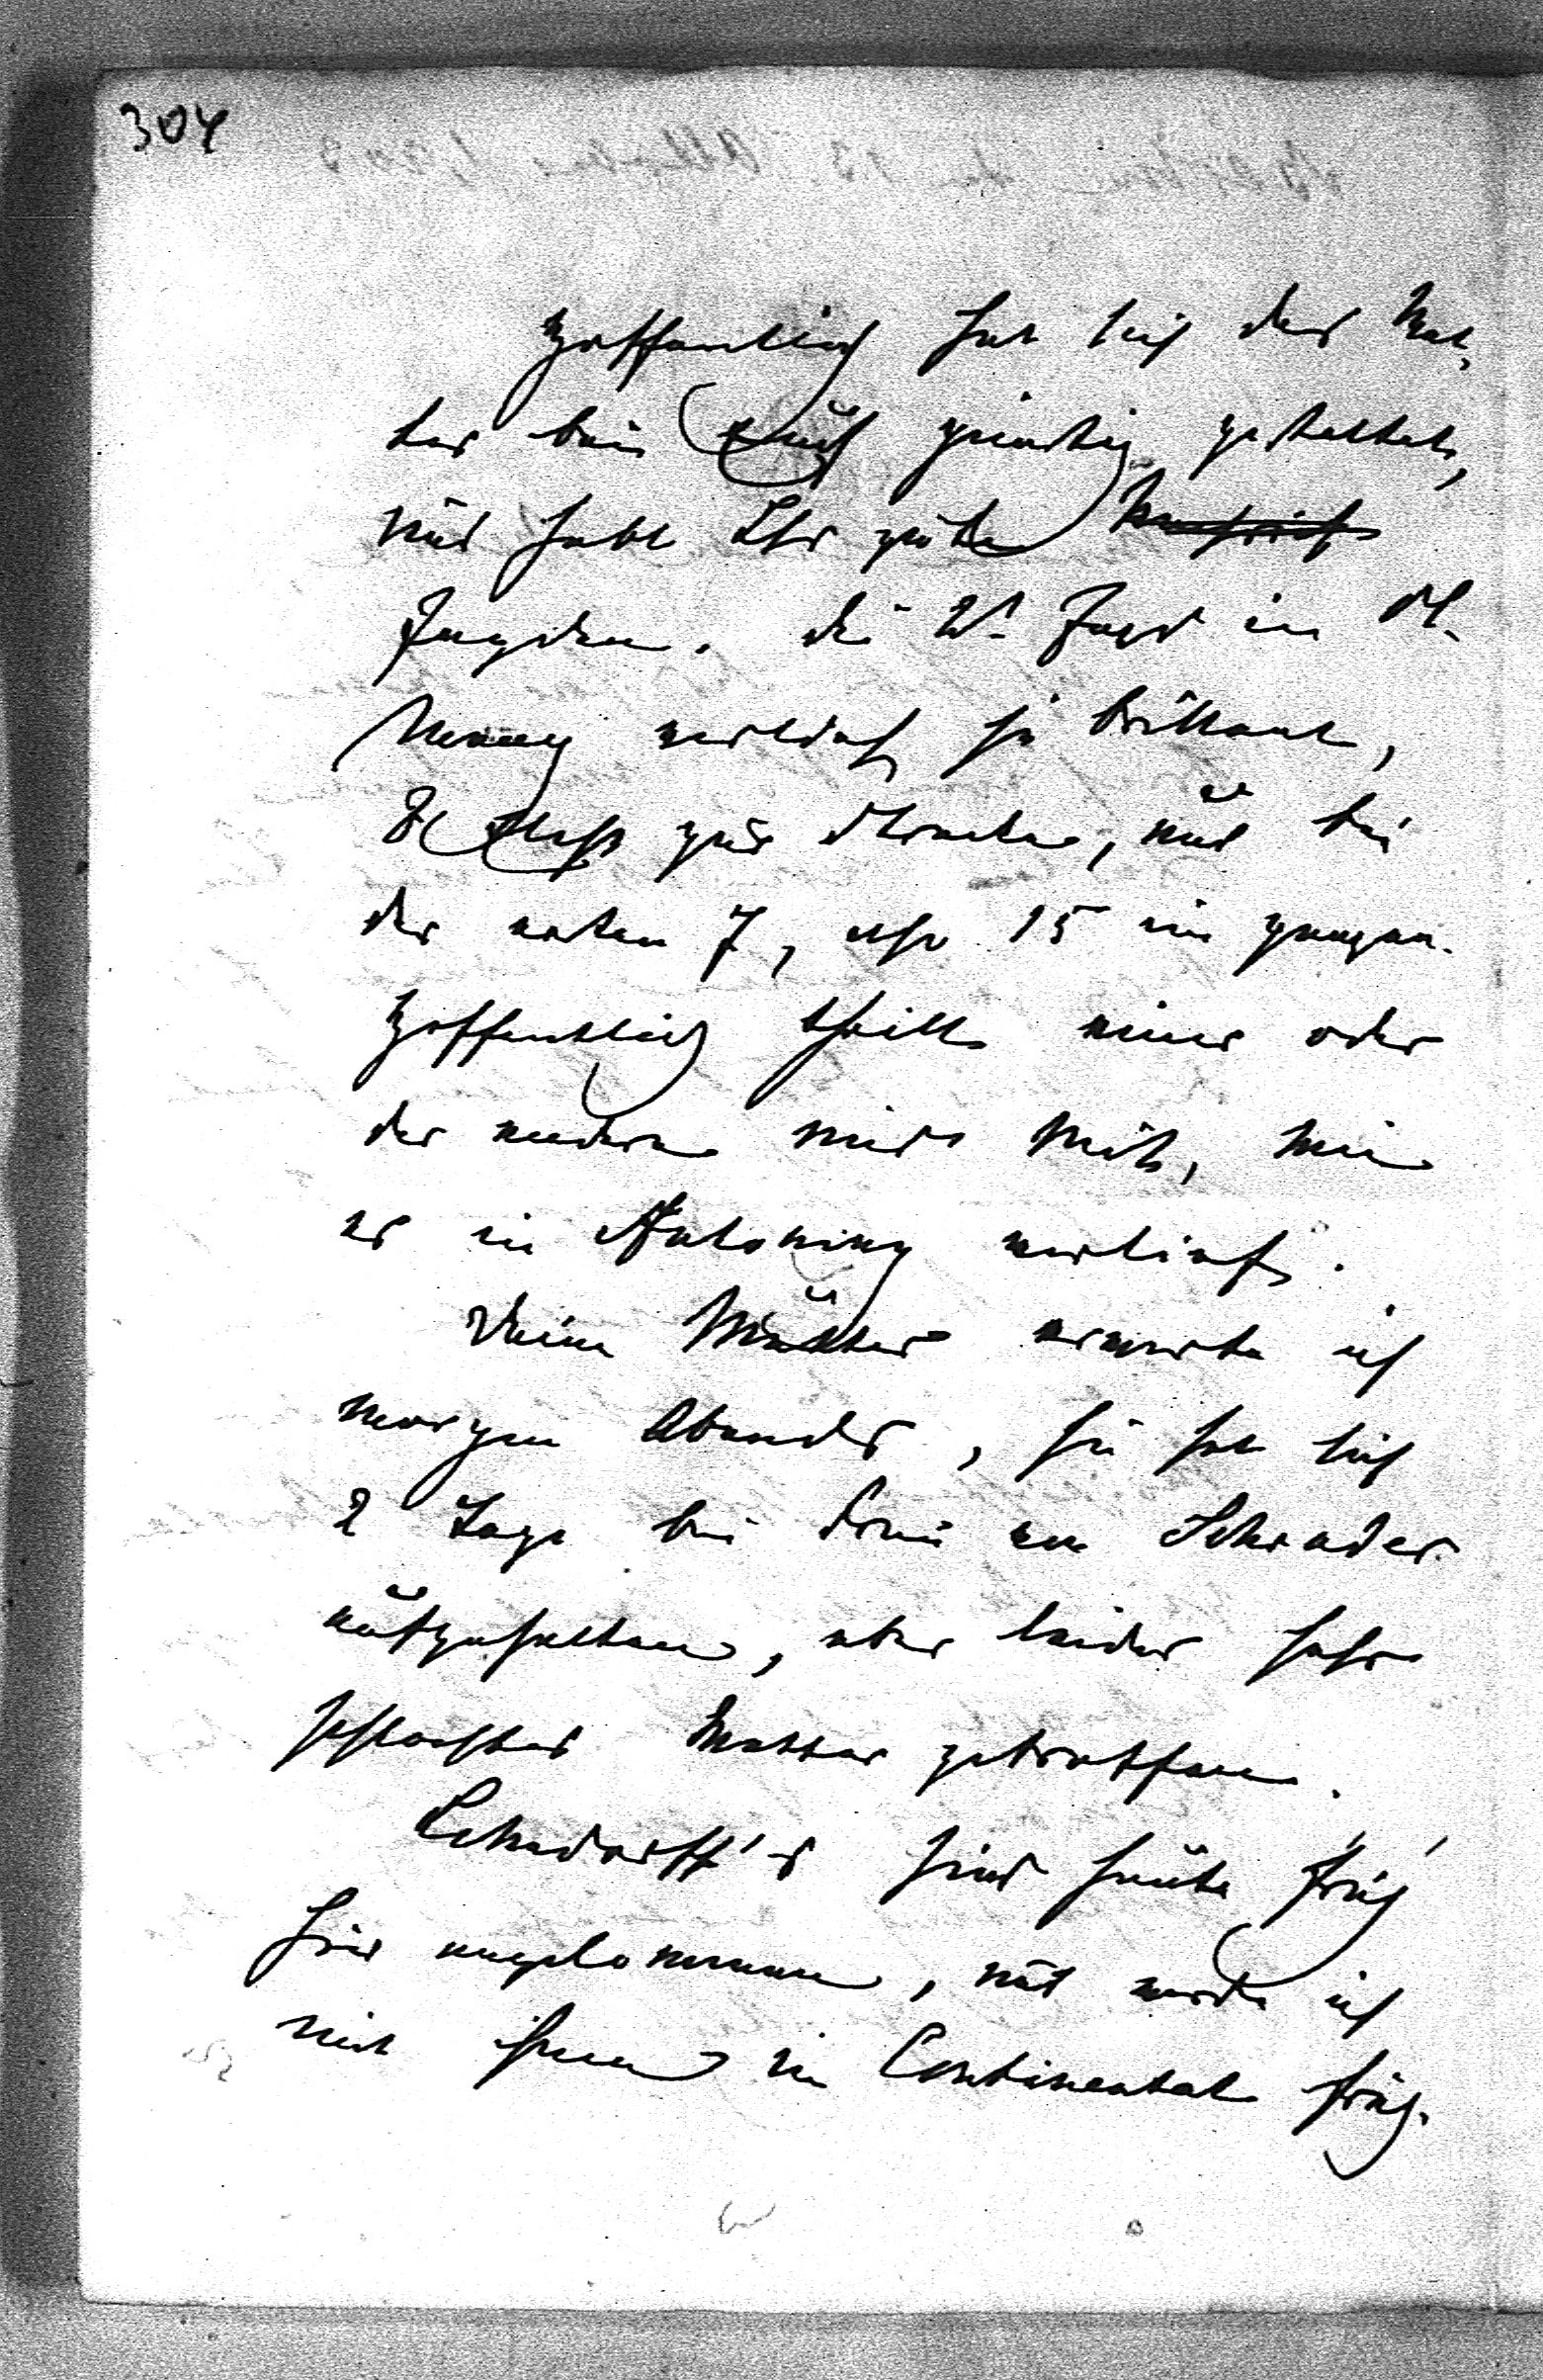 304
Hoffentlich hat sich das Wet,
ter bei Euch günstig gestaltet,
und habt Ihr gute
Jagden. Die W. Jagd in Ol.
verlief ja brillant,
8 zur Strecke, und bei
der ersten 7, also 15 im ganzen.
Hoffentlich theilt einer oder
der andere mir mit, wie
es in Antoniny verlief.
Deine Mutter erwarte ich
morgen Abends, sie hat sich
2 Tage bei Frau von Schrader
aufgehalten, aber leider sehr
schlechtes Wetter getroffen.
Lehndorff's sind heute früh
hier angekommen, und werde ich
mit ihnen im Continental früh-